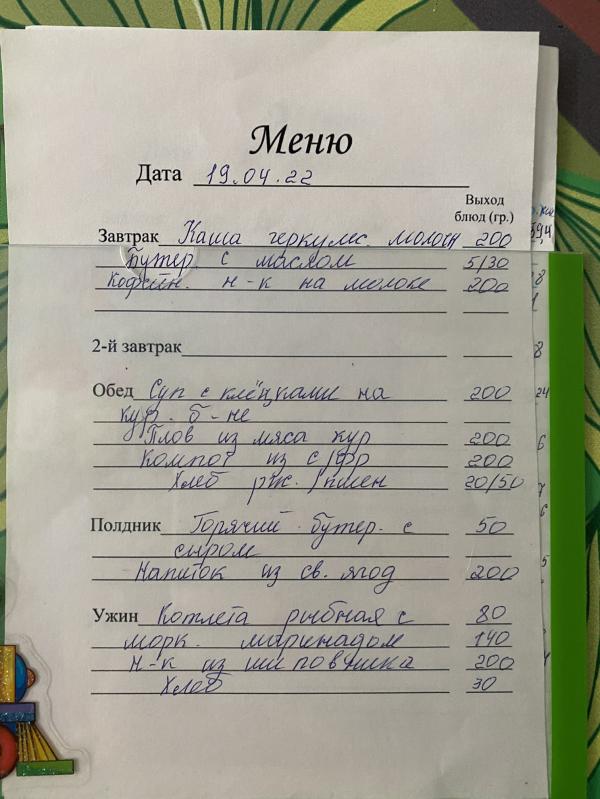 Меню
Дата 19.04.22
Выход
блюд (гр.)
Завтрак Каша геркулес. молочн 200
бутер. с маслом 5/30
Кофейн. н-к на молоке 200
2-й завтрак
Обед Суп с клёцками на 200
кур. б-не
Плов из мяса кур 200
Компот из с/фр 200
Хлеб рж./пшен 20/50
Полдник Горячий бутер. с 50
сыром
Напиток из св. ягод 200
Ужин Котлета рыбная с 80
морк. маринадом 140
н-к из шиповника 200
Хлеб 30